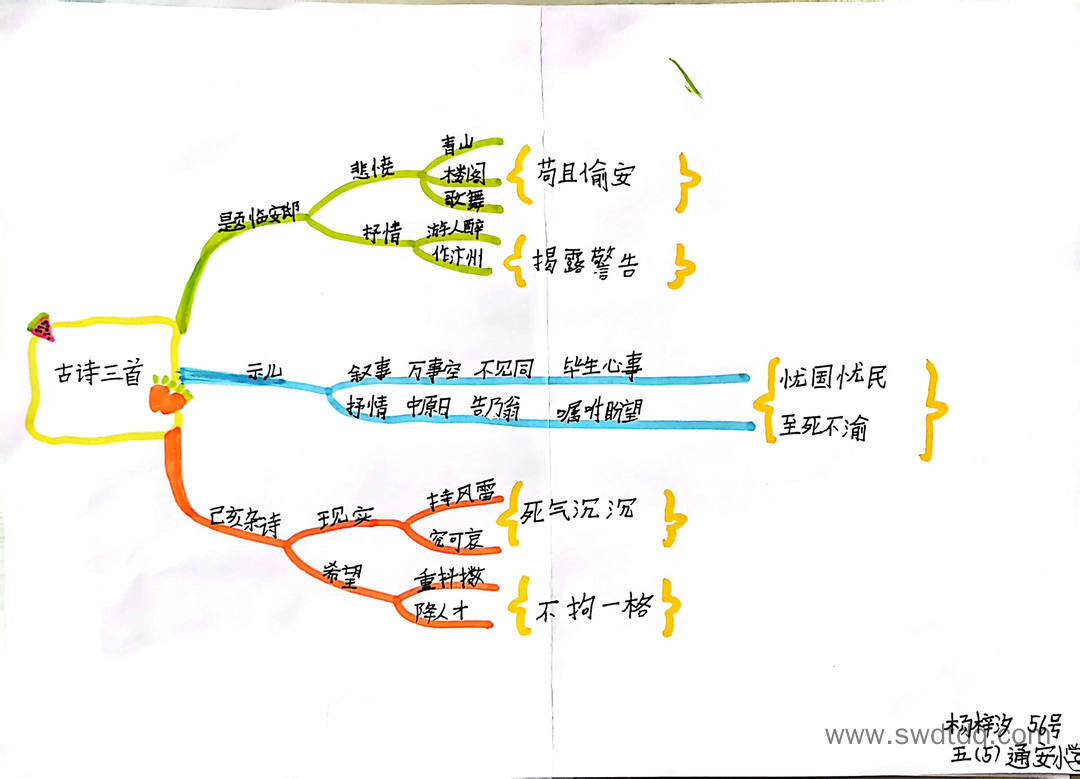 古诗三首
题临安邸
悲愤
青山
楼阁
歌舞
苟且偷安
抒情
游人醉
作汴州
揭露警告
示儿
叙事 万事空 不见同 毕生心事
抒情 中原日 告乃翁 嘱咐盼望
忧国忧民
至死不渝
己亥杂诗
现实
持风雷
究可哀
死气沉沉
希望
重抖擞
降人才
不拘一格
杨梓汐 56号
五(5) 通安小学
www.swdtdq.com